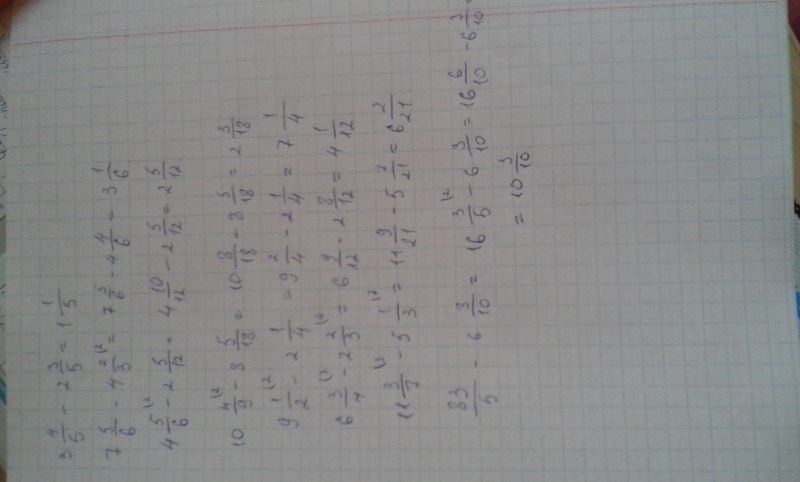 3 4/5 - 2 3/5 = 1 1/5
7 5/6 - 4 2/3 (2 = 7 5/6 - 4 4/6 = 3 1/6
4 5/6 (2 - 2 5/12 = 4 10/12 - 2 5/12 = 2 5/12
10 4/9 (2 - 8 5/18 = 10 8/18 - 8 5/18 = 2 3/18
9 1/2 (2 - 2 1/4 = 9 2/4 - 2 1/4 = 7 1/4
6 3/4 (3 - 2 2/3 = 6 9/12 - 2 8/12 = 4 1/12
11 3/7 (3 - 5 1/3 = 11 9/21 - 5 7/21 = 6 2/21
83/5 - 6 3/10 = 16 3/5 (2 - 6 3/10 = 16 6/10 - 6 3/10 =
= 10 3/10